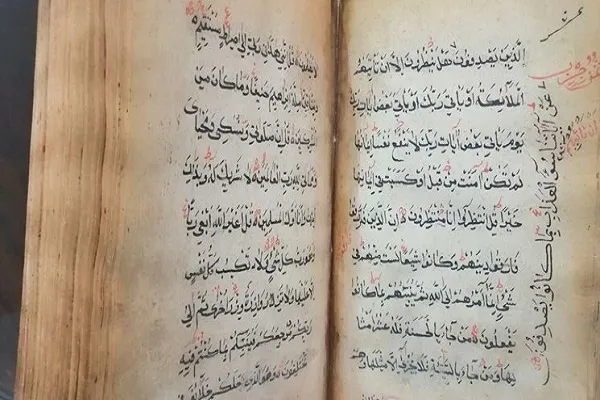 الَّذِينَ يَصْدِفُونَ هَلْ يَنْظُرُونَ اِلَّا اَنْ تَاْتِيَهُمُ
الْمَلٰٓئِكَةُ اَوْ يَاْتِيَ رَبُّكَ اَوْ يَاْتِيَ بَعْضُ اٰيَاتِ رَبِّكَ
يَوْمَ يَاْتِي بَعْضُ اٰيَاتِ رَبِّكَ لَا يَنْفَعُ نَفْسًا اِيمَانُهَا
لَمْ تَكُنْ اٰمَنَتْ مِنْ قَبْلُ اَوْ كَسَبَتْ فِي اِيمَانِهَا
خَيْرًا قُلِ انْتَظِرُوا اِنَّا مُنْتَظِرُونَ اِنَّ الَّذِينَ
فَارَقُوا دِينَهُمْ وَكَانُوا شِيَعًا لَسْتَ مِنْهُمْ فِي
شَيْءٍ اِنَّمَا اَمْرُهُمْ اِلَى اللّٰهِ ثُمَّ يُنَبِّئُهُمْ بِمَا كَانُوا
يَفْعَلُونَ مَنْ جَاءَ بِالْحَسَنَةِ فَلَهُ عَشْرُ اَمْثَا
لِهَا وَمَنْ جَاءَ بِالسَّيِّئَةِ فَلَا يُجْزٰى اِلَّا مِثْلَهَا وَهُمْ
عَنْ اٰيَاتِنَا سُوءَ الْعَذَابِ بِمَا كَانُوا يَصْدِفُونَ
لَا يُظْلَمُونَ قُلْ اِنَّنِي هَدَانِي رَبِّي اِلٰى صِرَاطٍ مُسْتَقِيمٍ
دِينًا قِيَمًا مِلَّةَ اِبْرٰهِيمَ حَنِيفًا وَمَا كَانَ مِنَ
الْمُشْرِكِينَ قُلْ اِنَّ صَلَاتِي وَنُسُكِي وَمَحْيَايَ
وَمَمَاتِي لِلّٰهِ رَبِّ الْعَالَمِينَ لَا شَرِيكَ لَهُ وَبِذٰلِكَ
اُمِرْتُ وَاَنَا اَوَّلُ الْمُسْلِمِينَ قُلْ اَغَيْرَ اللّٰهِ اَبْغِي رَبًّا
وَهُوَ رَبُّ كُلِّ شَيْءٍ وَلَا تَكْسِبُ كُلُّ نَفْسٍ
اِلَّا عَلَيْهَا وَلَا تَزِرُ وَازِرَةٌ وِزْرَ اُخْرٰى ثُمَّ اِلٰى
رَبِّكُمْ مَرْجِعُكُمْ فَيُنَبِّئُكُمْ بِمَا كُنْتُمْ فِيهِ
تَخْتَلِفُونَ وَهُوَ الَّذِي جَعَلَكُمْ خَلَائِفَ